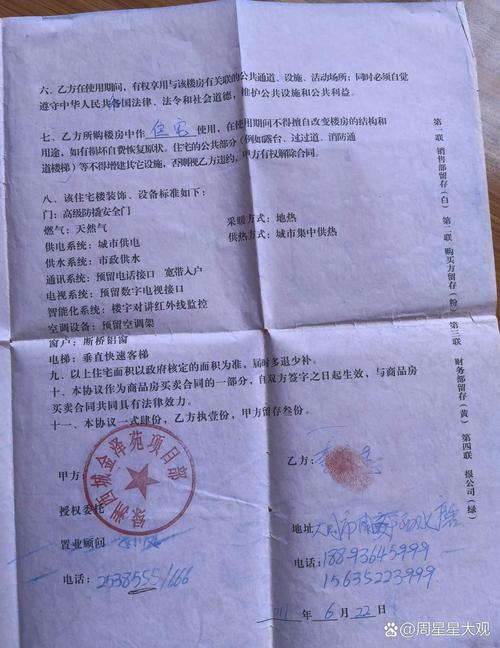 六、乙方在使用期间，有权享用与该楼房有关联的公共通道、设施、活动场所；同时必须自觉
遵守中华人民共各国法律、法令和社会道德，维护公共设施和公共利益。
七、乙方所购楼房中作 住宅 使用，在使用期间不得擅自改变楼房的结构和
用途，如有损坏自费恢复原状。住宅的公共部分（例如露台、过过道、消防通
道楼梯）等不得增建其它设施，否则视乙方违约，甲方有权解除合同。
八、该住宅楼装饰、设备标准如下：
门：高级防撬安全门
燃气：天然气 采暖方式：地热
供电系统：城市供电 供热方式：城市集中供热
供水系统：市政供水
通讯系统：预留电话接口 宽带入户
电视系统：预留数字电视接口
智能化系统：楼宇对讲红外线监控
空调设备：预留空调架
窗户：断桥铝窗
电梯：垂直快速客梯
九、以上住宅面积以政府核定的面积为准，届时多退少补。
十、本协议作为商品房买卖合同的一部分，自双方签字之日起生效，与商品房
买卖合同共同具有法律效力。
十一、本协议一式肆份，乙方执壹份，甲方留存叁份。
甲方： 乙方：
绿洲西城金泽苑项目部
授权委托
地址
置业顾问
电话：18893645999
15635223999
电话：25385551666
2011 年 6 月 22 日
第一联 销售部留存（白） 第二联 购买方留存（粉） 第三联 财务部留存（黄） 第四联 报公司（绿）
@周星星大观